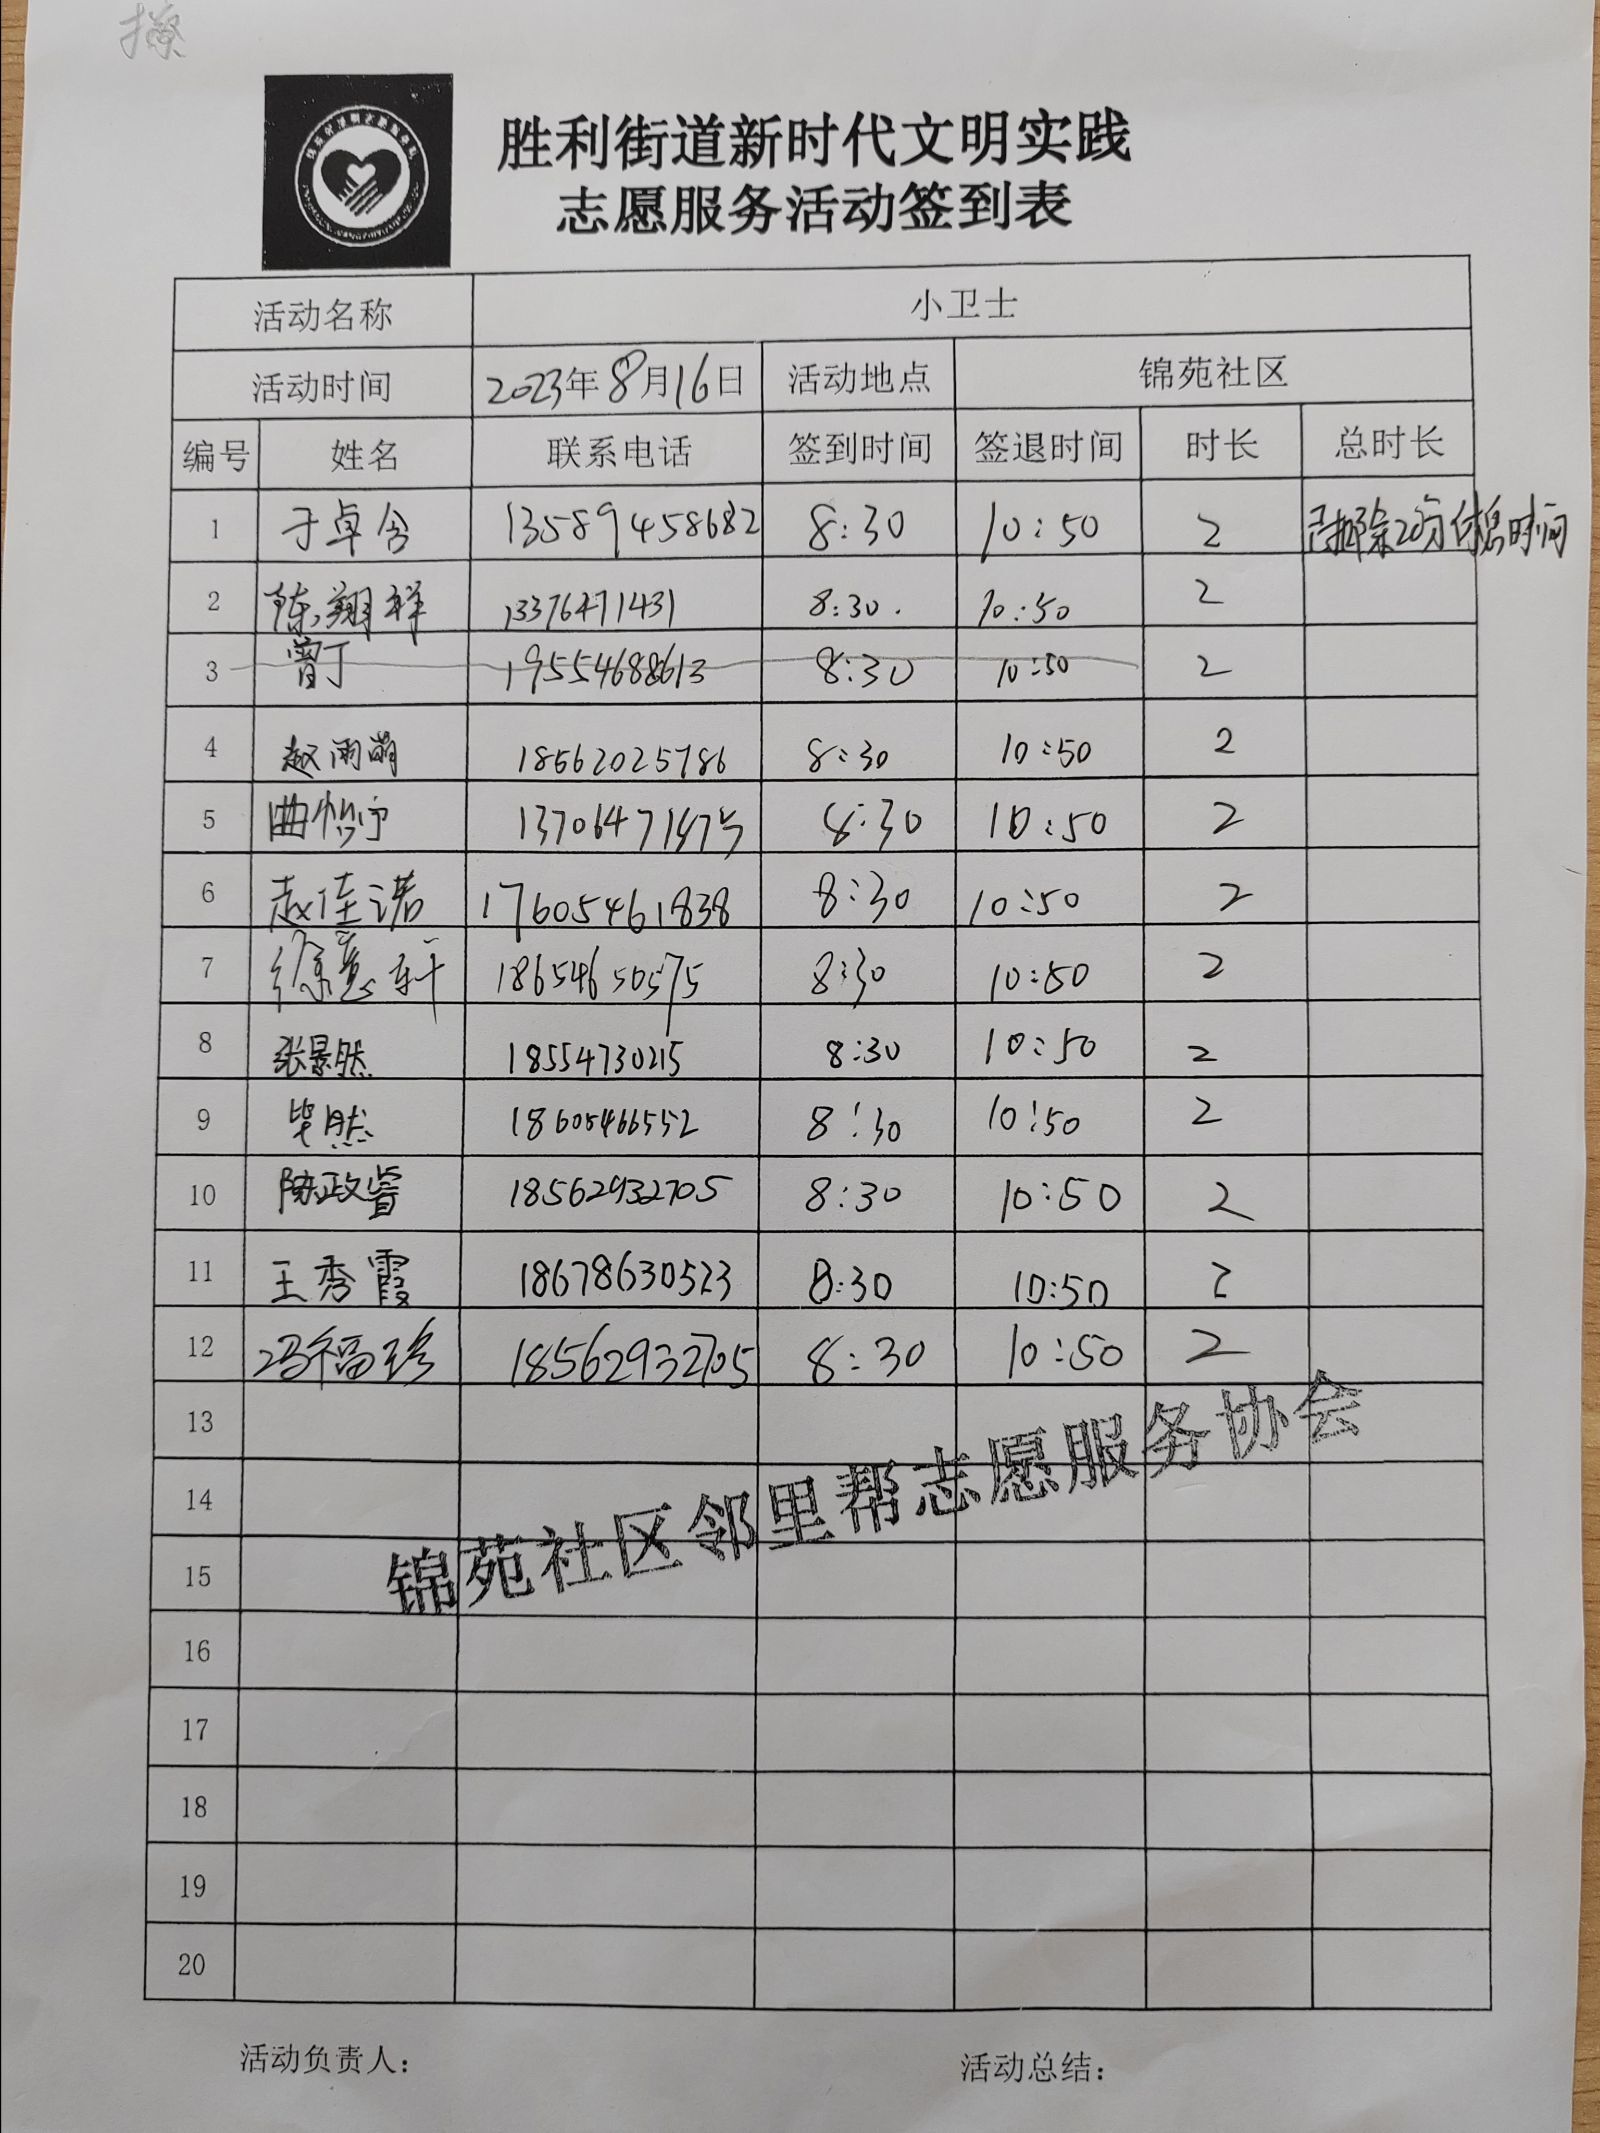 胜利街道新时代文明实践
志愿服务活动签到表
活动名称 小卫士
活动时间 2023年8月16日 活动地点 锦苑社区
编号 姓名 联系电话 签到时间 签退时间 时长 总时长
1 于卓含 13589458682 8:30 10:50 2 已扣除20分休息时间
2 陈翔祥 13376471431 8:30. 10:50 2
3 曾丁 19554688613 8:30 10:50 2
4 赵雨萌 18562025786 8:30 10:50 2
5 曲怡宁 8:30 10:50 2
6 赵佳诺 17605461838 8:30 10:50 2
7 徐意轩 18654650575 8:30 10:50 2
8 张景然 18554730215 8:30 10:50 2
9 毕然 18605466552 8:30 10:50 2
10 陈政睿 18562932705 8:30 10:50 2
11 王秀霞 18678630523 8:30 10:50 2
12 冯福珍 18562932705 8:30 10:50 2
13
14
15
锦苑社区邻里帮志愿服务协会
16
17
18
19
20
活动负责人: 活动总结: